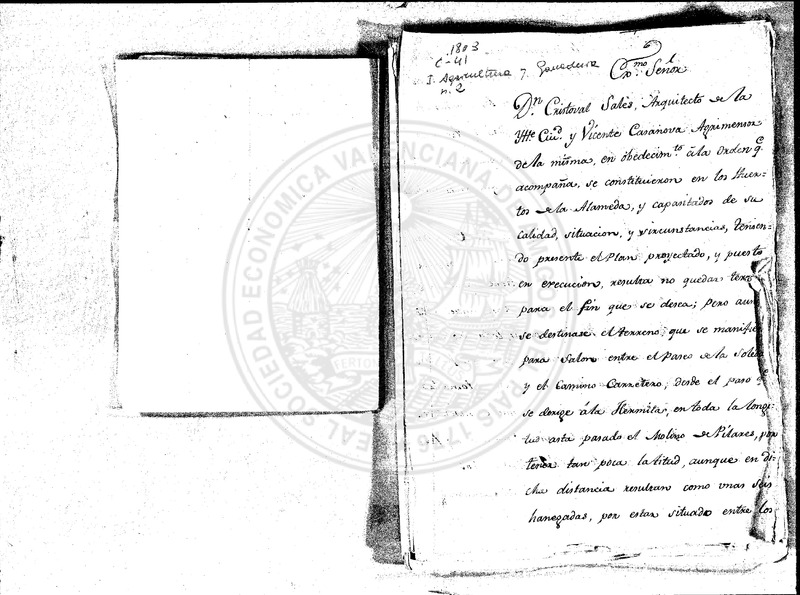 1803
C-41
I. Agricultura y Ganaderia
n.2
Exmo. Señor
Dn. Cristoval Sales, Arquitecto de la
Iltte. Ciud. y Vicente Casanova Agrimensor
de la misma, en obedecimto. á la orden q.e
acompaña, se constituieron en los Huer-
tos de la Alameda, y capacitados de su
calidad, situacion, y circunstancias, tenien-
do presente el Plan proyectado, y puesto
en execucion, resulta no quedar
para el fin que se desea; pero
se destinase el terreno que se
para Salon entre el Paseo de la
y el Camino Carretero; desde el paso q.e
se dirige á la Hermita, en toda la longi-
tud asta pasado el Molino de Pilares, por
tener tan poca latitud, aunque en di-
cha distancia resultan como unas seis
hanegadas, por estar situado entre los
REAL SOCIEDAD ECONOMICA VALENCIANA DE AMIGOS DEL PAIS 1776